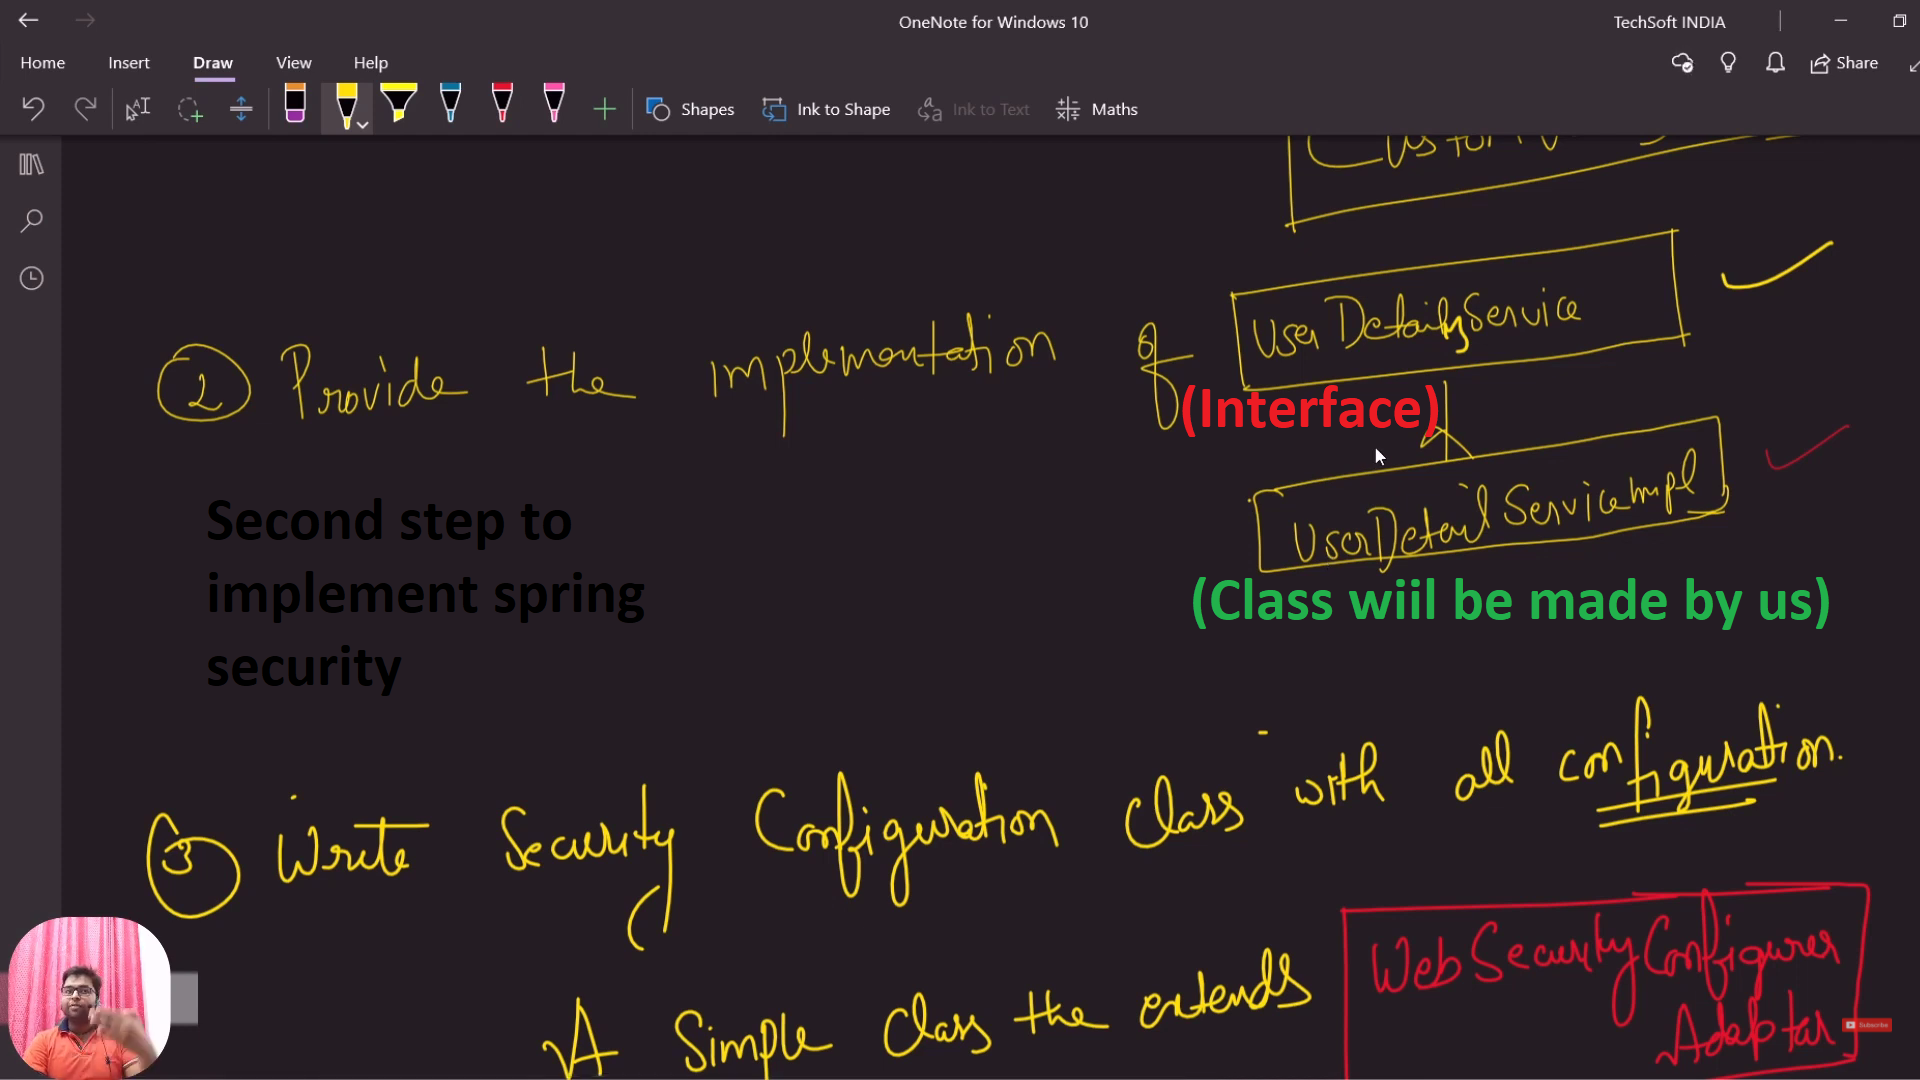 OneNote for Windows 10
TechSoft INDIA
Home Insert Draw View Help
Share
Shapes Ink to Shape Ink to Text Maths
② Provide the implementation of UserDetailsService
(Interface)
UserDetailServiceImpl
(Class wiil be made by us)
Second step to
implement spring
security
③ Write Security Configuration class with all configuration.
A Simple class the extends WebSecurityConfigurer
Adaptar
Subscribe